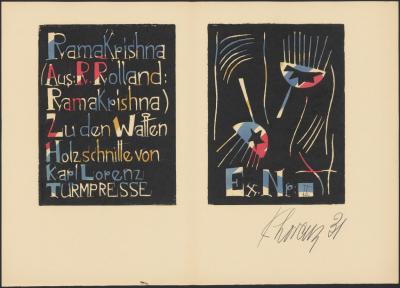 RamaKrishna
(Aus: R. Rolland:
RamaKrishna)
Zu den Waffen
Holzschnitte von
Karl Lorenz
TURMPRESSE
Ex. Nr:
K Lorenz 31